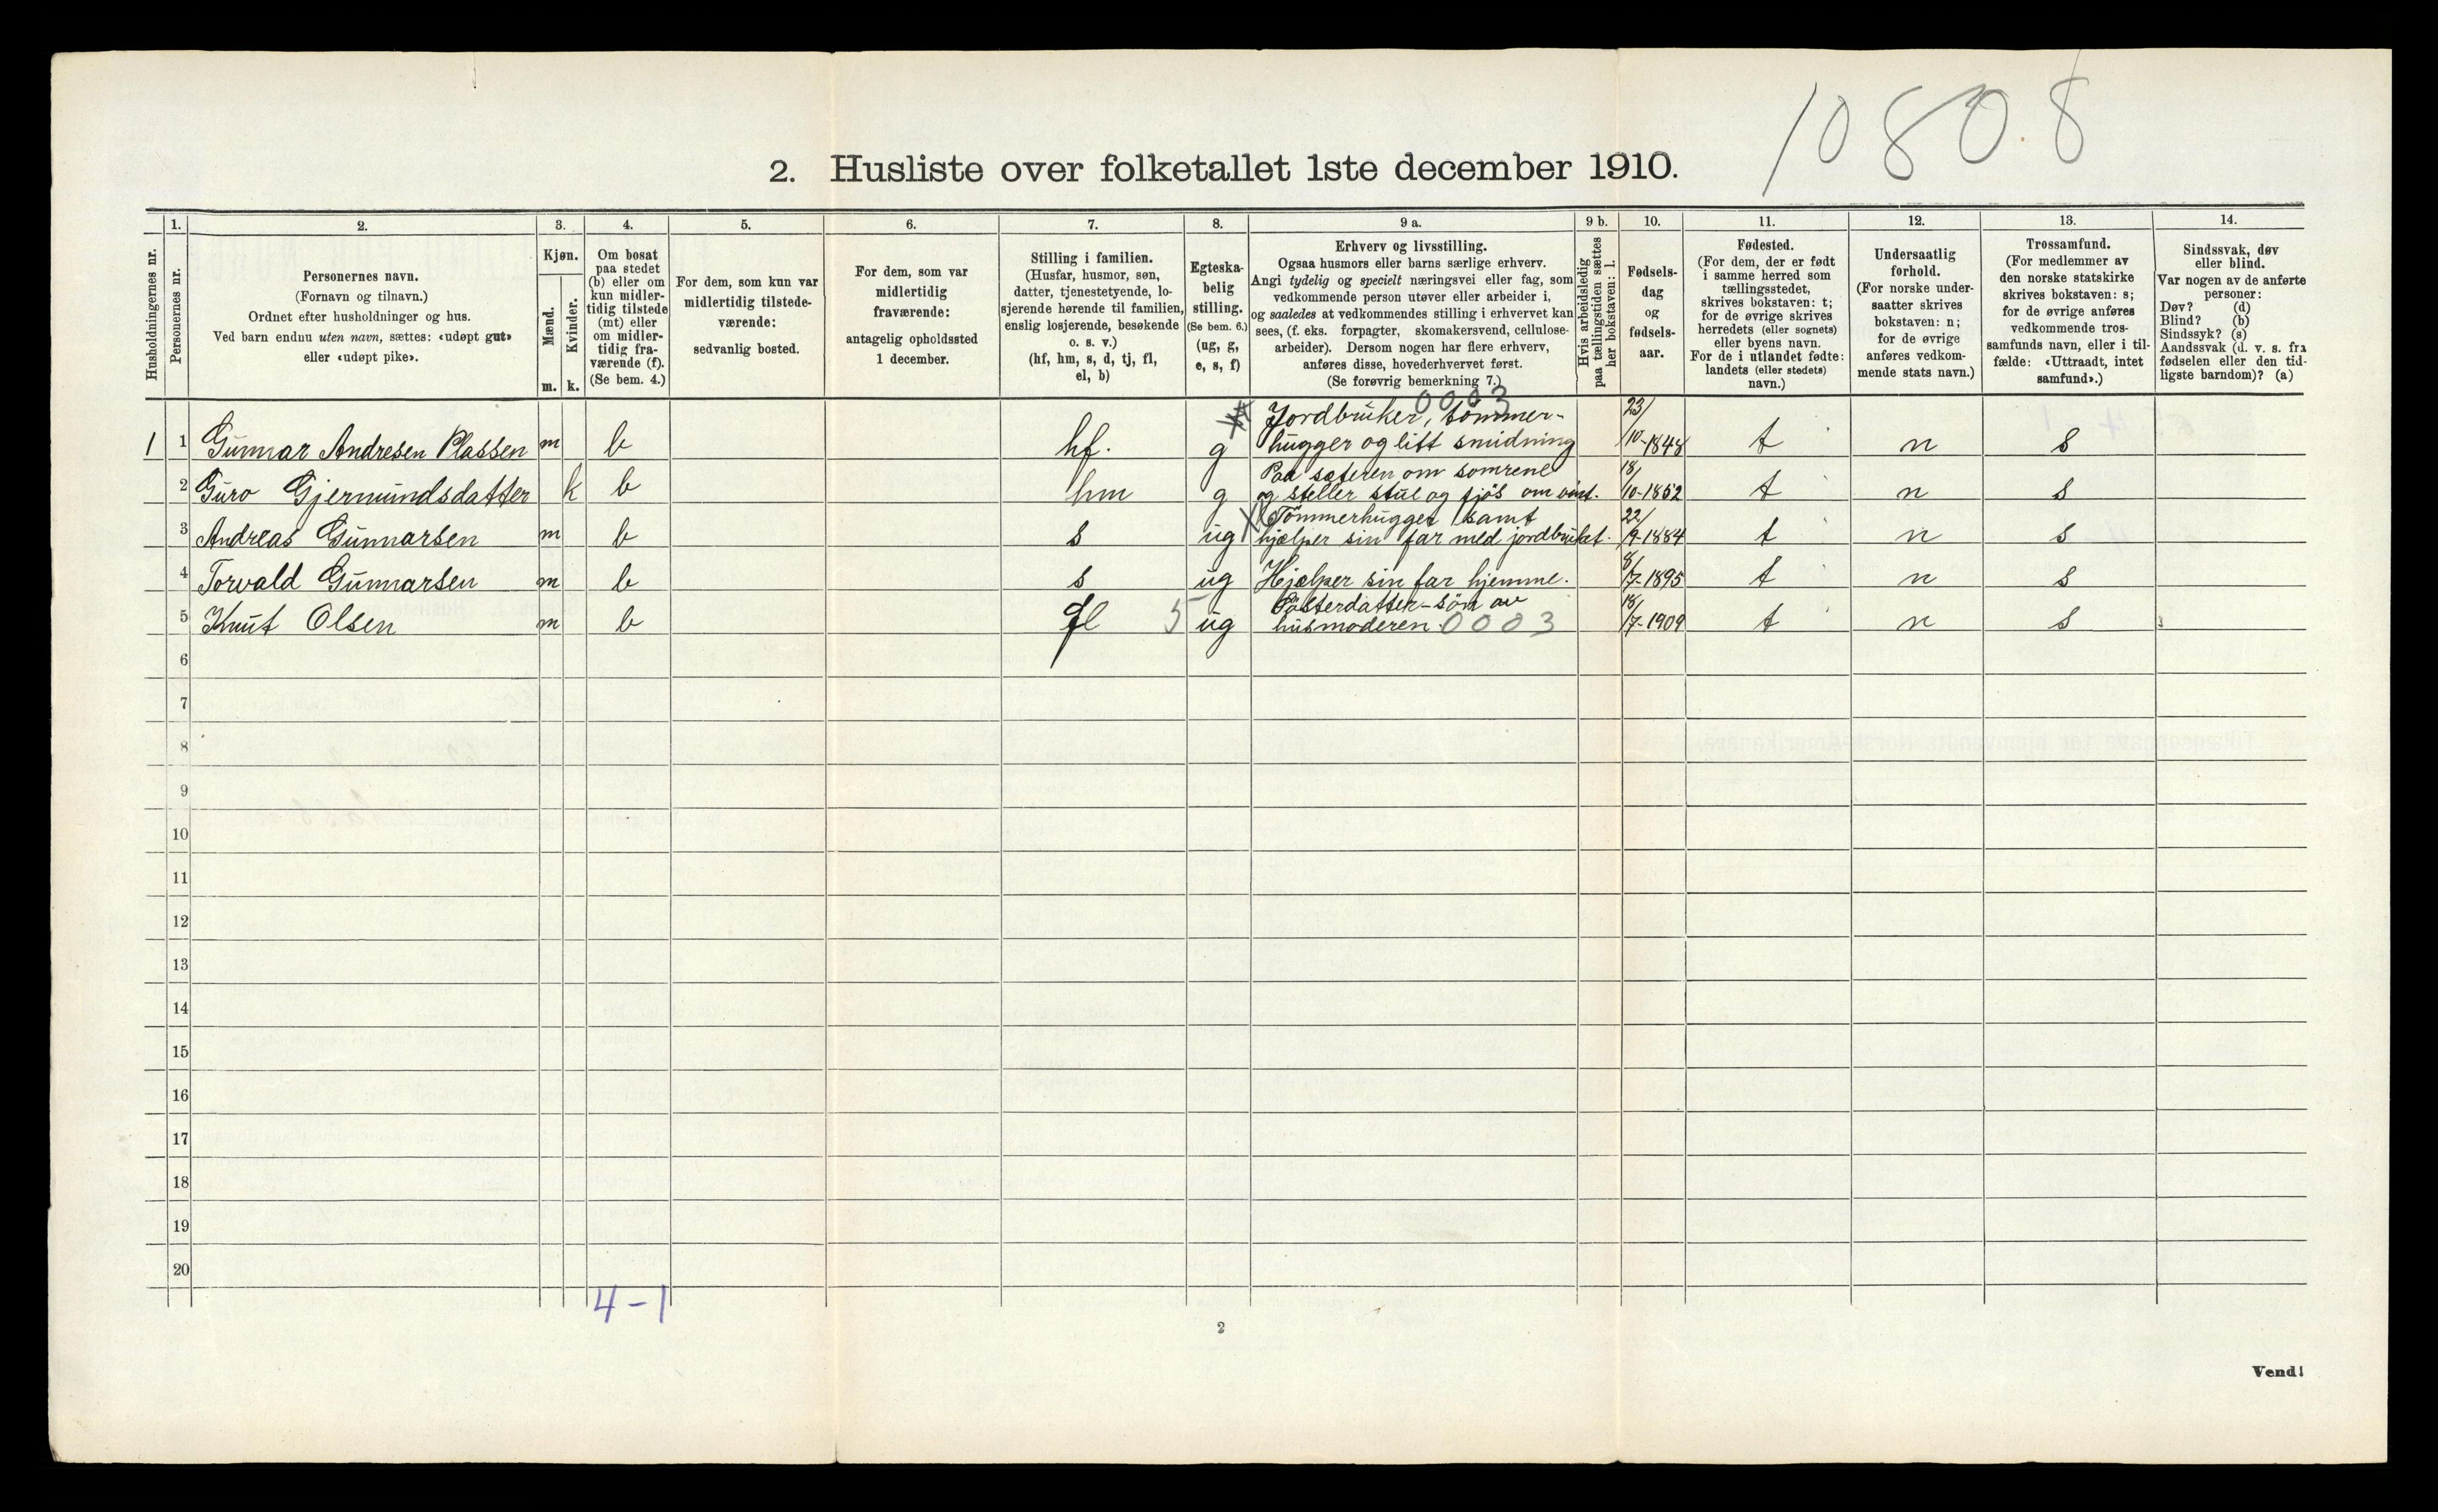 10808
2. Husliste over folketallet 1ste december 1910.
Husholdningernes nr.
1.
Personernes nr.
2.
Personernes navn.
(Fornavn og tilnavn.)
Ordnet efter husholdninger og hus.
Ved barn endnu uten navn, sættes: «udøpt gut»
eller «udøpt pike».
3.
Kjøn.
Mænd.
m.
Kvinder.
k.
4.
Om bosat
paa stedet
(b) eller om
kun midler-
tidig tilstede
(mt) eller
om midler-
tidig fra-
værende (f).
(Se bem. 4.)
5.
For dem, som kun var
midlertidig tilstede-
værende:
sedvanlig bosted.
6.
For dem, som var
midlertidig
fraværende:
antagelig opholdssted
1 december.
7.
Stilling i familien.
(Husfar, husmor, søn,
datter, tjenestetyende, lo-
sjerende hørende til familien,
enslig losjerende, besøkende
o. s. v.)
(hf, hm, s, d, tj, fl,
el, b)
8.
Egteska-
belig
stilling.
(Se bem. 6.)
(ug, g,
e, s, f)
9 a.
Erhverv og livsstilling.
Ogsaa husmors eller barns særlige erhverv.
Angi tydelig og specielt næringsvei eller fag, som
vedkommende person utøver eller arbeider i,
og saaledes at vedkommendes stilling i erhvervet kan
sees, (f. eks. forpagter, skomakersvend, cellulose-
arbeider). Dersom nogen har flere erhverv,
anføres disse, hovederhvervet først.
(Se forøvrig bemerkning 7.)
9 b.
Hvis arbeidsledig
paa tællingstiden sættes
her bokstaven: l.
10.
Fødsels-
dag
og
fødsels-
aar.
11.
Fødested.
(For dem, der er født
i samme herred som
tællingsstedet,
skrives bokstaven: t;
for de øvrige skrives
herredets (eller sognets)
eller byens navn.
For de i utlandet fødte:
landets (eller stedets)
navn.)
12.
Undersaatlig
forhold.
(For norske under-
saatter skrives
bokstaven: n;
for de øvrige
anføres vedkom-
mende stats navn.)
13.
Trossamfund.
(For medlemmer av
den norske statskirke
skrives bokstaven: s;
for de øvrige anføres
vedkommende tros-
samfunds navn, eller i til-
fælde: «Uttraadt, intet
samfund».)
14.
Sindssvak, døv
eller blind.
Var nogen av de anførte
personer:
Døv? (d)
Blind? (b)
Sindssyk? (s)
Aandssvak (d. v. s. fra
fødselen eller den tid-
ligste barndom)? (a)
0003
1 1 Gunnar Andresen Plassen m b hf. g Jordbruker, tømmer-
hugger og litt smidning 23/10-1848 t n s
2 Guro Gjermundsdatter k b hm g Paa sæteren om somrene
og steller stue og fjøs om vint. 18/10-1852 t n s
3 Andreas Gunnarsen m b s ug Tømmerhugger samt
hjælper sin far med jordbruket. 22/9-1884 t n s
4 Torvald Gunnarsen m b s ug Hjælper sin far hjemme. 8/7-1895 t n s
5 Knut Olsen m b fl 5 ug Søsterdatter-søn av
husmoderen. 0003 18/7-1909 t n s
6
7
8
9
10
11
12
13
14
15
16
17
18
19
20
4-1
2
Vend!